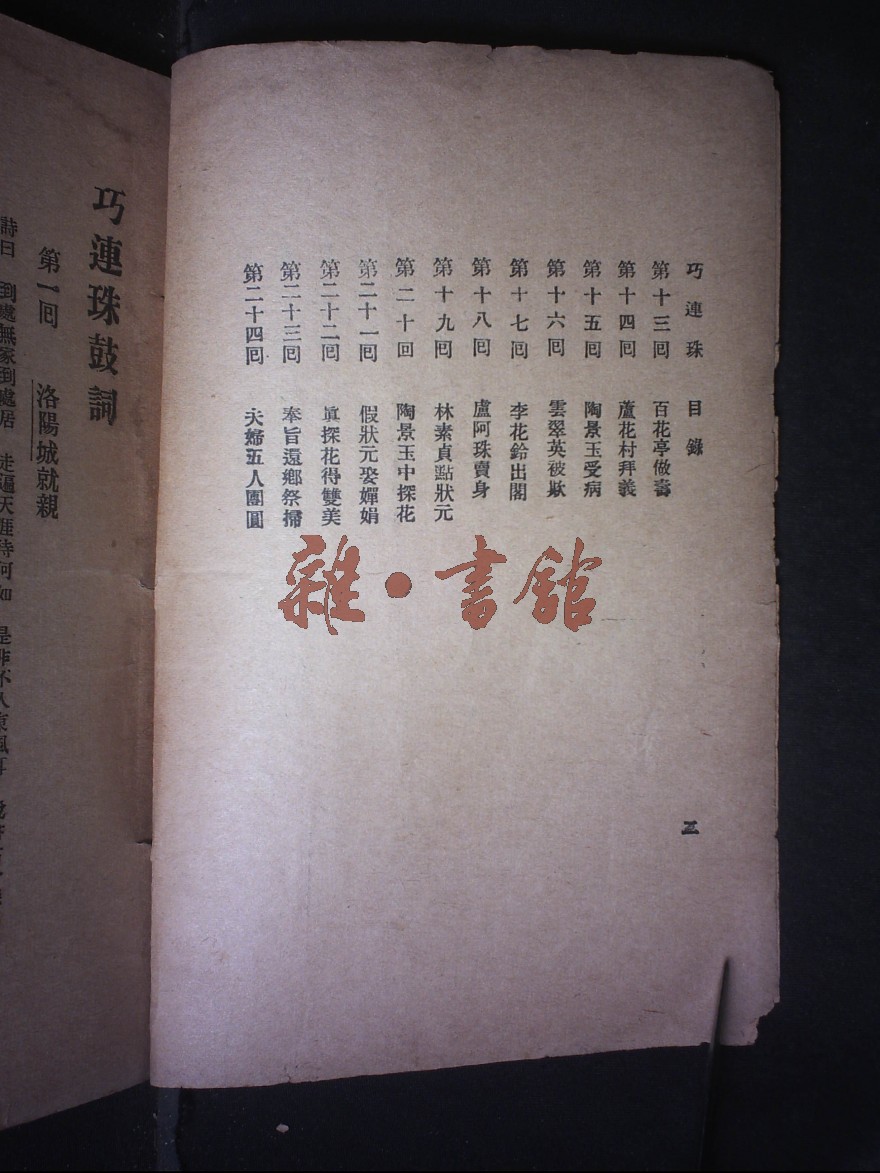 巧連珠 目錄
第十三囘 百花亭做壽
第十四囘 蘆花村拜義
第十五囘 陶景玉受病
第十六囘 雲翠英被欺
第十七囘 李花鈴出閣
第十八囘 盧阿珠賣身
第十九囘 林素貞點狀元
第二十回 陶景玉中探花
第二十一囘 假狀元娶嬋娟
第二十二囘 眞探花得雙美
第二十三囘 奉旨還鄉祭掃
第二十四囘 夫婦五人團圓
雜·書館
巧連珠鼓詞
第一囘 洛陽城就親
詩曰 到處無家到處居 走遍天涯待何如 是非不入東風耳